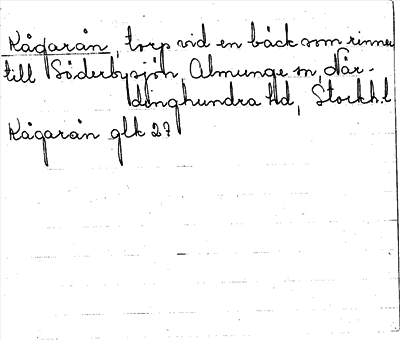 Kågarån, torp vid en bäck som rinner
till Söderbysjön, Almunge sn, När-
dinghundra hd, Stockh.l
Kågarån glk 27